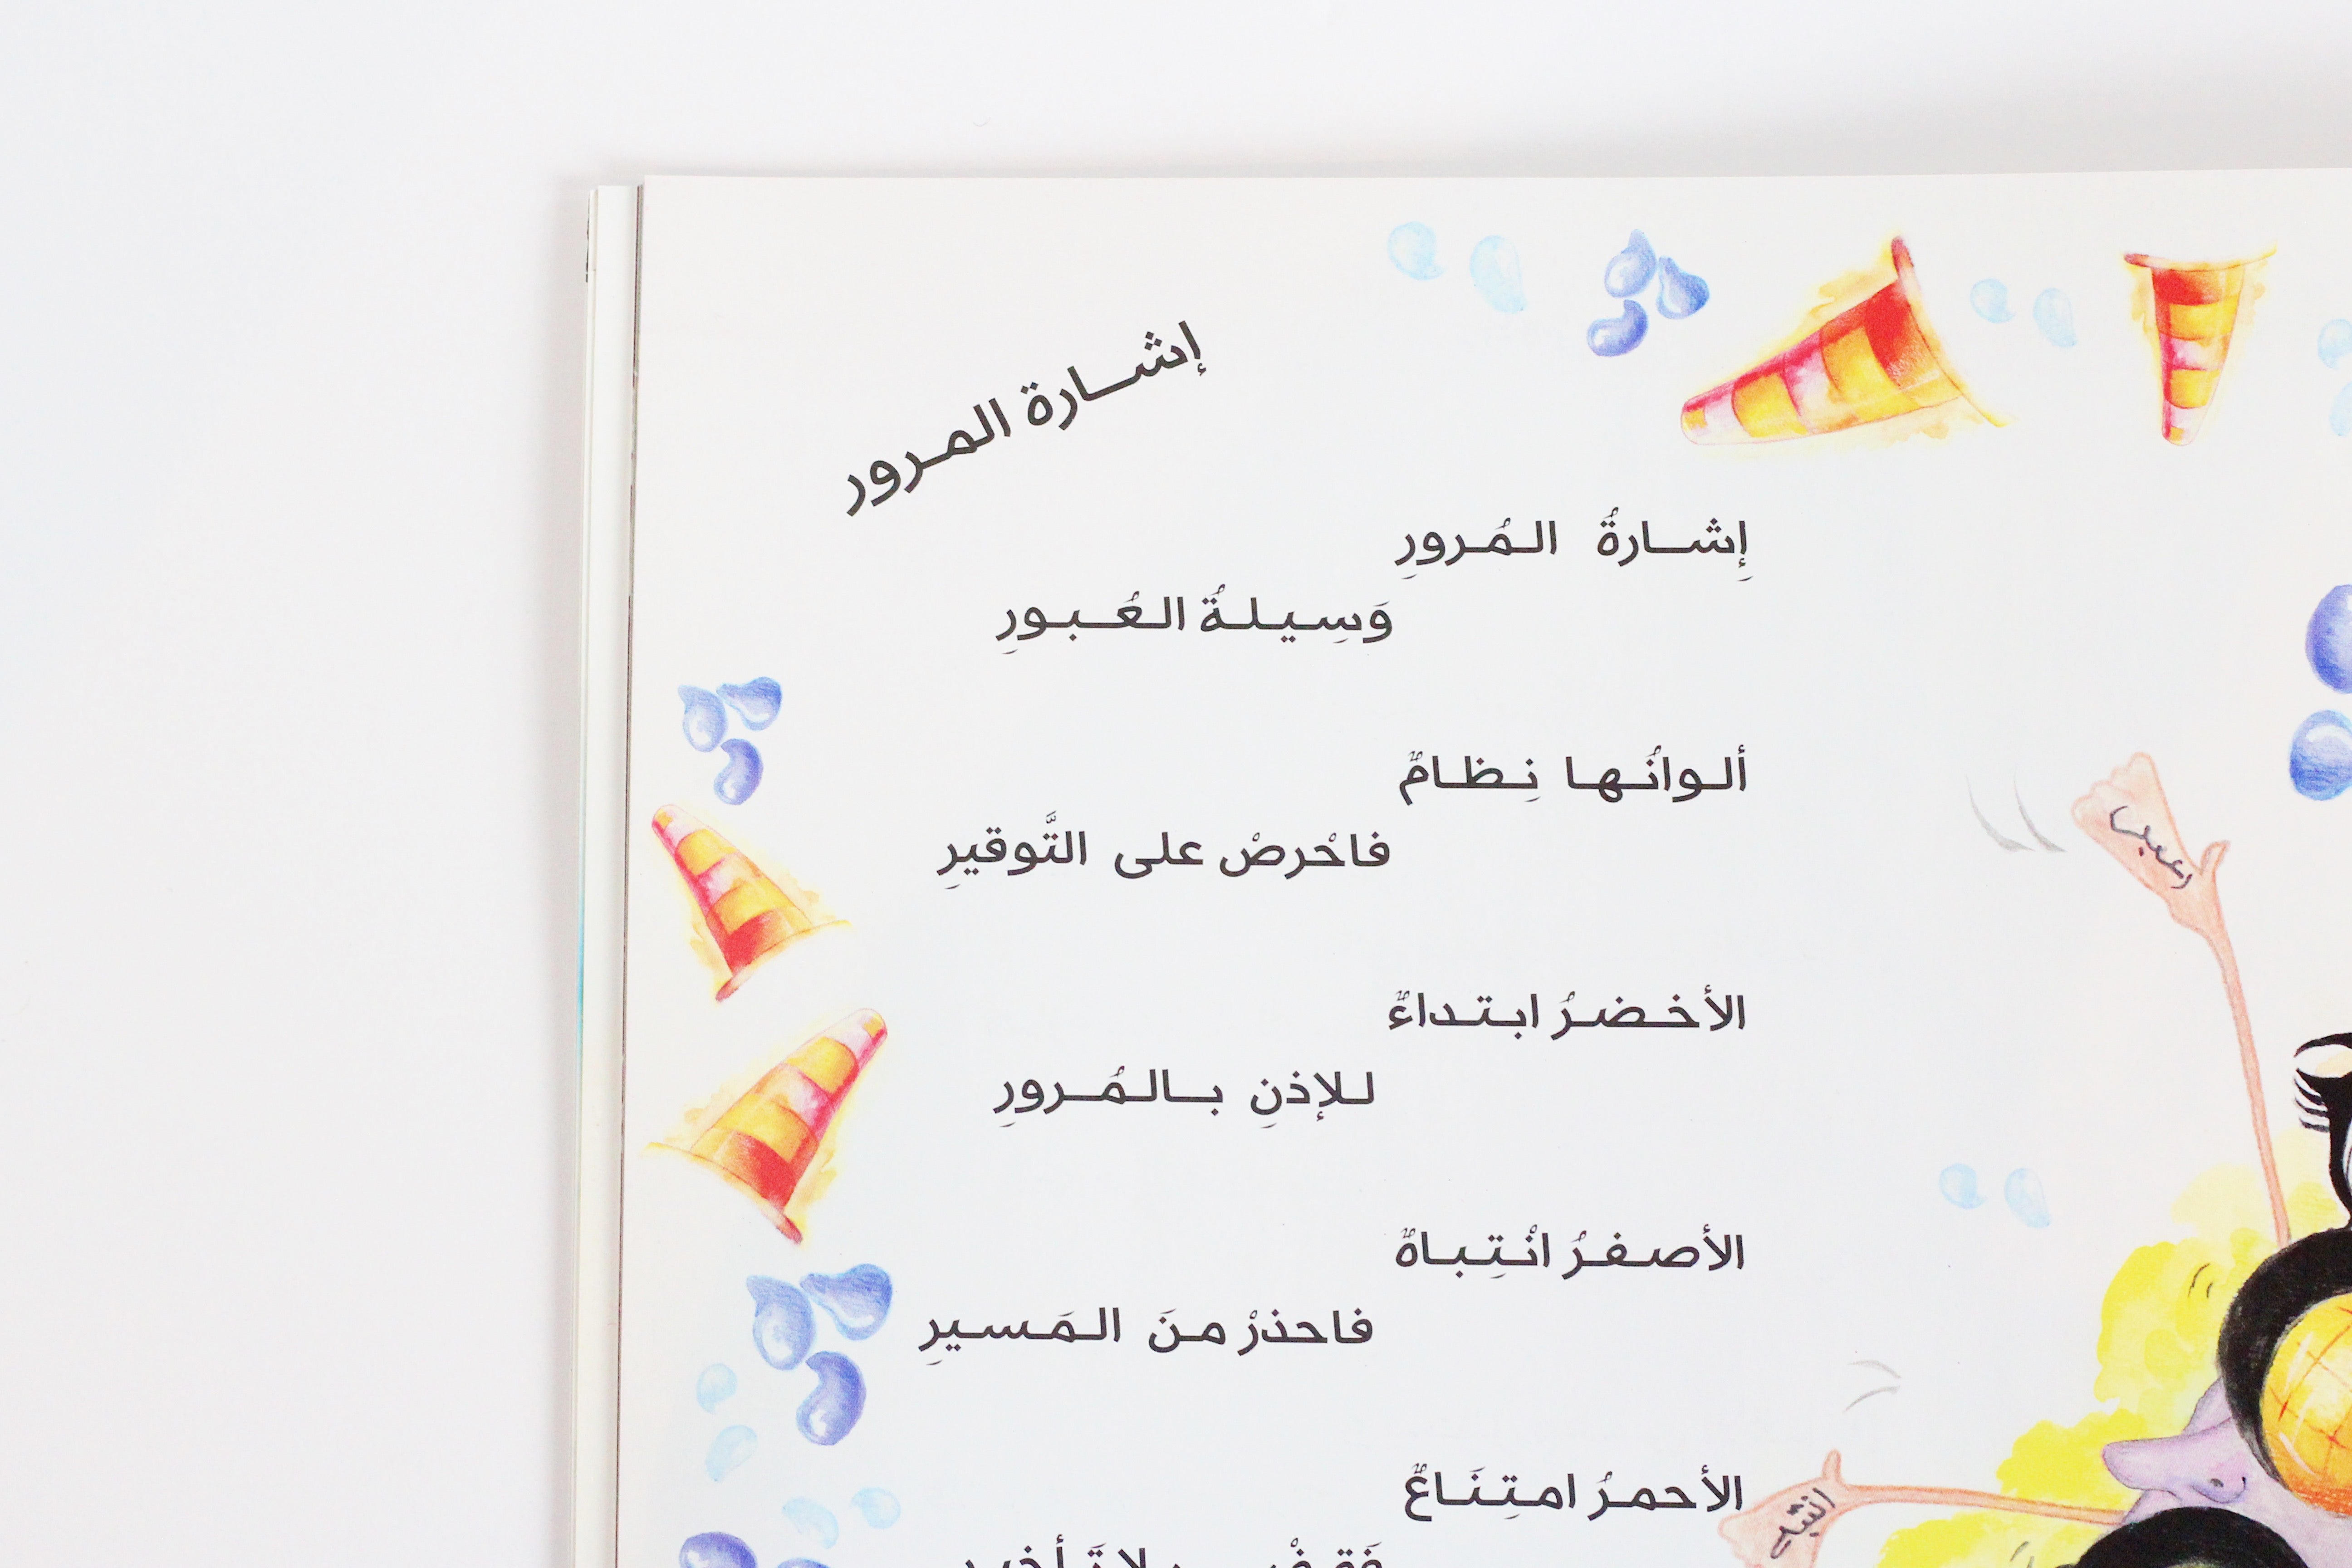 إشارة المرور
إِشارةُ المُرورِ
وَسِيلةُ العُبورِ
ألوانُها نِظامٌ
فاحْرصْ على التَّوقيرِ
الأخضرُ ابتداءٌ
للإذنِ بالمُرورِ
الأصفرُ انْتِباهٌ
فاحذرْ منَ المَسيرِ
الأحمرُ امتِنَاعٌ
انتبه